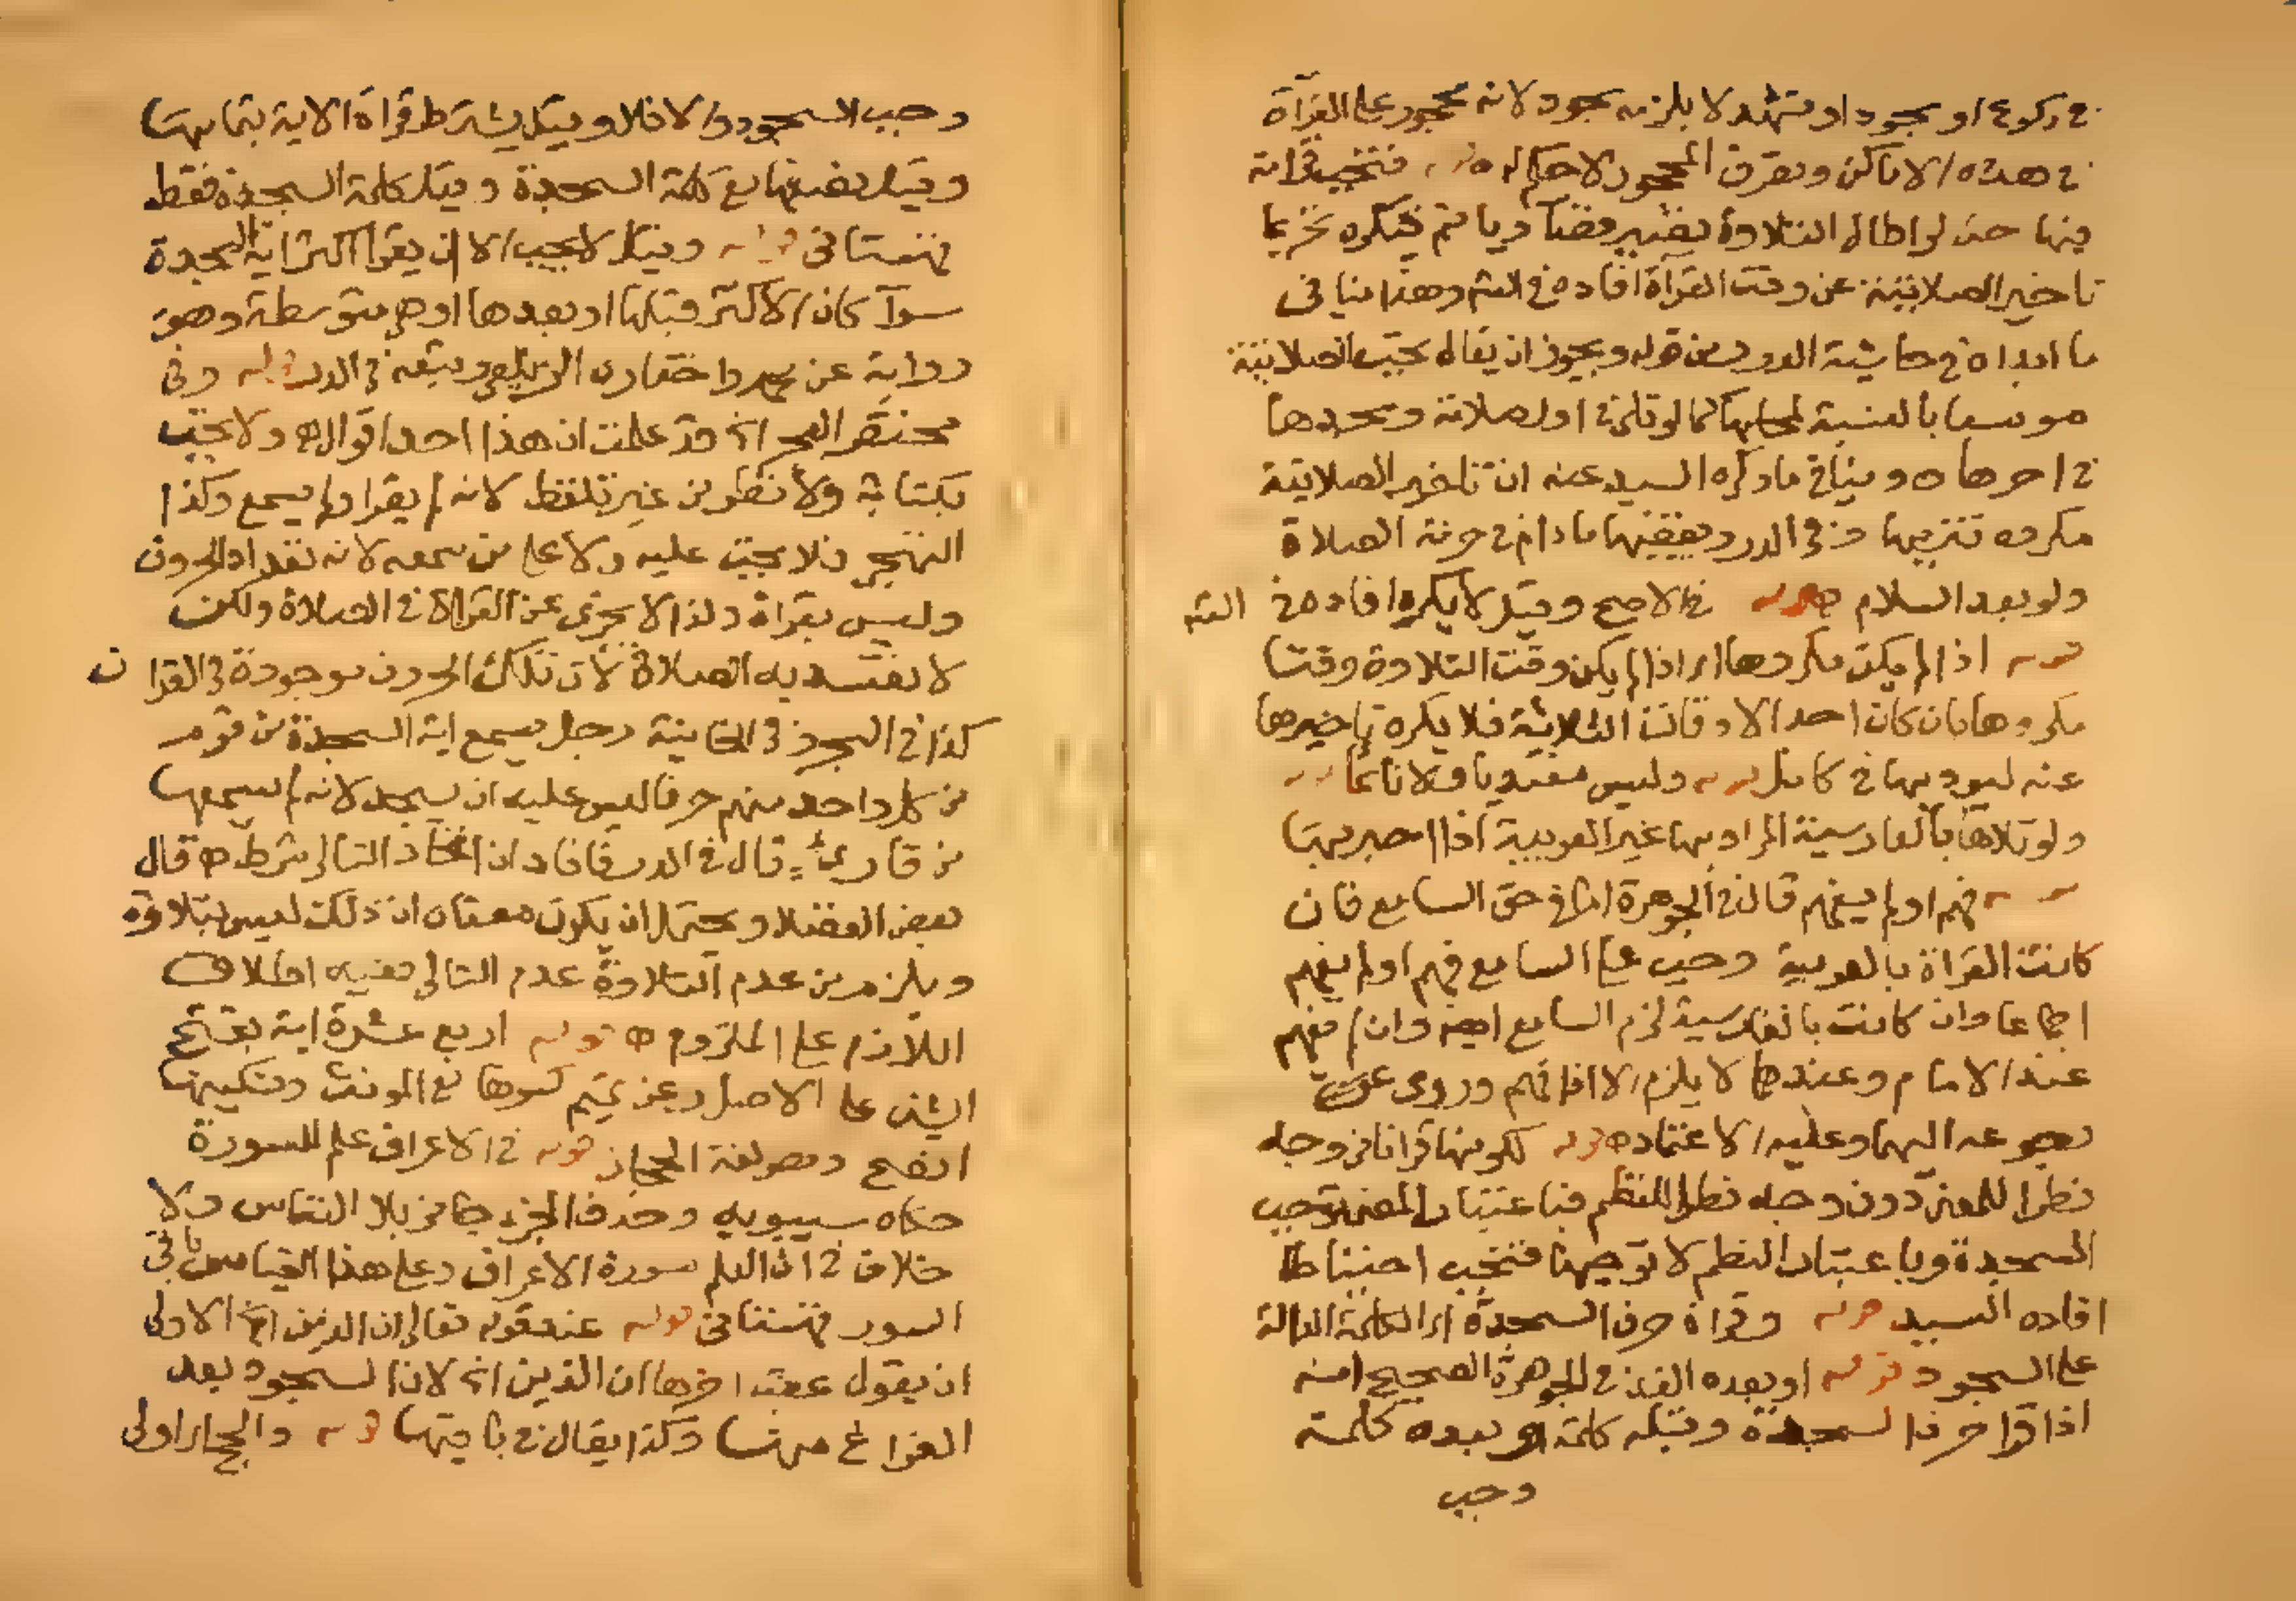 في ركوع او سجود او تشهد لا يلزمه سجود لانه محجور على القرآة
في هذه الاماكن وتعرف المحجور لا حكم له ه قوله فتجب فيها
فيها حتى لو اطال التلاوة تصير قضا ويأثم فيكره تحريما
تاخير الصلاتية عن وقت القرآة افاده في الشر وهذا ينافي
ما ابداه في حاشية الدرر من قوله ويجوز ان يقال تجب الصلاتية
موسعا بالنسبة لمحلها كما لو تلى في اول صلاته وسجدها
في اخرها ه وينافي ما ذكره السيد عنه ان تاخير الصلاتية
مكروه تنزيها وفي الدرر ويقضيها ما دام في حرمة الصلاة
ولو بعد السلام ه قوله في الاصح وقيل لا يكره افاده في الشر
قوله اذا لم يكن مكروها اي اذا لم يكن وقت التلاوة وقتا
مكروها بان كان احد الاوقات الثلاثة فلا يكره تاخيرها
عنه ليوديها في كامل قوله وليس مقتديا ولا نائما قوله
ولو تلاها بالفارسية المراد بها غير العربية اذا اخبر بها
قوله فهم او لم يفهم قال في الجوهرة اما في حق السامع فان
كانت القراة بالعربية وجب على السامع فهم او لم يفهم
اجماعا وان كانت بالفارسية لزم السامع ايضا وان لم يفهم
عند الامام وعندهما لا يلزم الا اذا فهم وروى
رجوعه اليهما وعليه الاعتماد ه قوله لكونها قرانا من وجه
نظرا للمعنى دون وجه نظرا للنظم فباعتبار المعنى توجب
السجدة وباعتبار النظم لا توجبها فتجب احتياطا
افاده السيد قوله وقراة حرف السجدة اي الكلمة الدالة
على السجود قوله او بعده الذي في الجوهرة الصحيح انه
اذا قرا حرف السجدة وقبله كلمة او بعده كلمة
وجب
وجب السجود والا فلا وقيل يشترط قراة الاية بتمامها
وقيل نصفها مع كلمة السجدة وقيل كلمة السجدة فقط
قهستاني قوله وقيل لا يجب الا ان يقرا اكثر اية السجدة
سوآ كان الاكثر قبلها او بعدها او هي متوسطة وهو
رواية عن محمد واختاره الزيلعي وتبعه في الدر قوله وفي
مختصر البحر الخ قد علمت ان هذا احد اقوال ه ولا يجب
بكتابة ولا نظر من غير تلفظ لانه لم يقرا ولم يسمع وكذا
التهجي فلا يجب عليه ولا على من سمعه لانه تعداد الحروف
وليس بقراة ولذا لا يجزي عن القراة في الصلاة ولكن
لا تفسد به الصلاة لان تلك الحروف موجودة في القران
كذا في البحر وفي الخانية رجل سمع اية السجدة من قوم
من كل واحد منهم حرفا ليس عليه ان يسجد لانه لم يسمعها
من قارئ قال في الدر فافاد ان اتحاد التالي شرط ه قال
بعض الفضلا ويحتمل ان يكون معناه ان ذلك ليس بتلاوة
ويلزم من عدم التلاوة عدم التالي ففيه اطلاق
اللازم على الملزوم ه قوله اربع عشرة اية بفتح
الشين على الاصل وعن تميم كسرها مع المونث وتسكينها
افصح وهو لغة الحجاز قوله في الاعراف علم للسورة
حكاه سيبويه وحذف الجزء جائز بلا التباس ولا
خلاف في ان العلم سورة الاعراف وعلى هذا القياس باقي
السور قهستاني قوله عند قوله تعالى ان الذين الخ الاولى
ان يقول عقب اخرها ان الذين الخ لان السجود بعد
الفراغ منها وكذا يقال في باقيها قوله والحج اولى